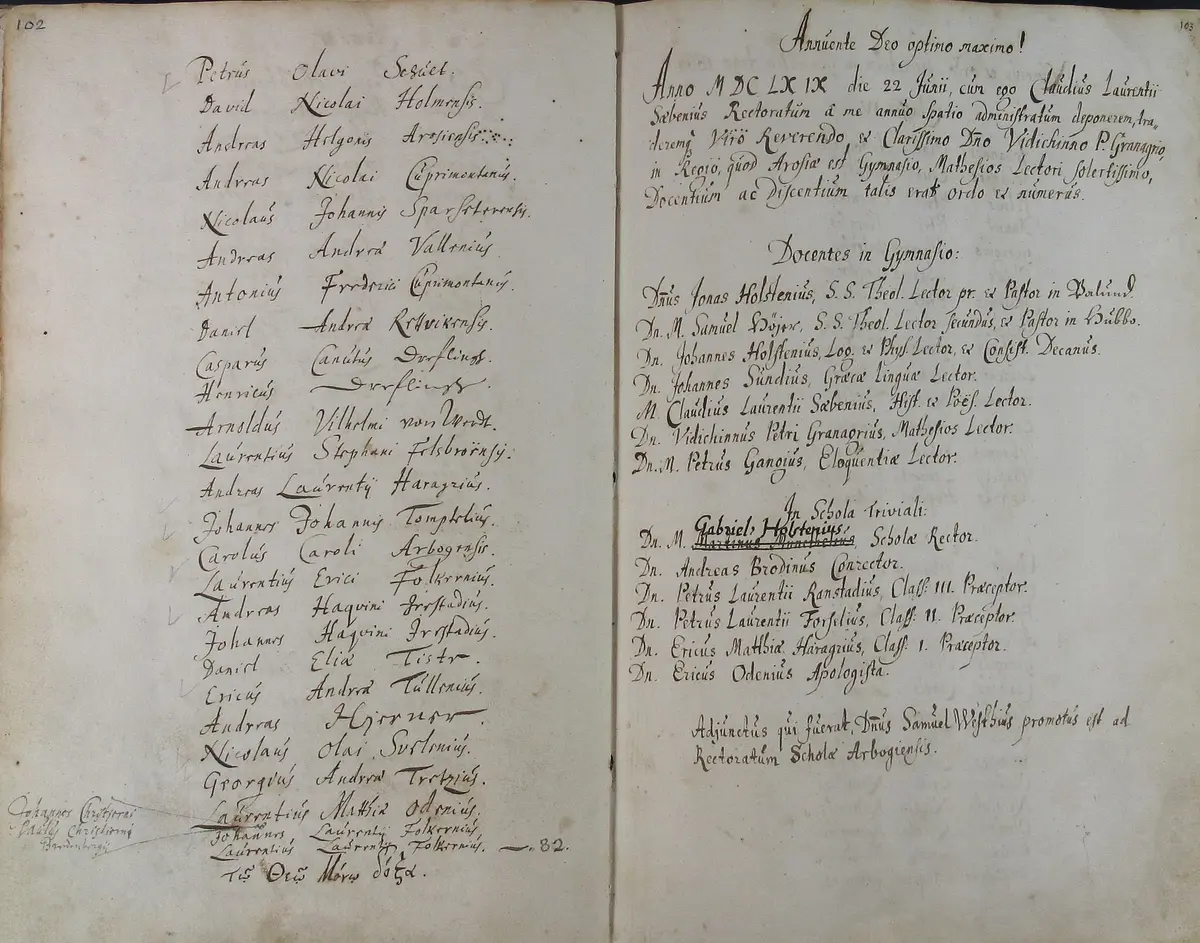 102
Petrus Olavi
David Nicolai Holmensis.
Andreas Helgonis Arosiensis
Andreas Nicolai Cuprimontanus.
Nicolaus Johannis
Andreas Andreæ Vallenius.
Antonius Frederici Cuprimontanus.
Daniel Andreæ Rettvikensis.
Casparus Canutus Dörflinger.
Henricus Dörflinger.
Arnoldus Vilhelmi von Werdt.
Laurentius Stephani
Andreas Laurentij Haragrius.
Johannes Johannis Tomptelius.
Carolus Caroli Arbogensis.
Laurentius Erici Folkernius.
Andreas Haqvini Irestadius.
Johannes Haqvini Irestadius.
Daniel Eliæ
Ericus Andreæ Tullenius.
Andreas Hjerner.
Nicolaus Olai
Georgius Andreæ
Laurentius Matthiæ Odenius.
Johannes Laurentij Folkernius,
Laurentius Laurentij Folkernius. 82.
Τῷ Θεῷ Μόνῳ δόξα.
Johannes
103
Annuente Deo optimo maximo!
Anno MDCLXIX die 22 Junii, cum ego Claudius Laurentii
Sæbenius Rectoratum â me annuo spatio administratum deponerem, tra„
deremq Virô Reverendo, & Clarissimo Dño Vidichinno P. Granagrio,
in Regiô, quod Arosiæ est, Gymnasio, Mathesios Lectori solertissimo,
Docentium ac Discentium talis erat ordo & numerus.
Docentes in Gymnasio:
Dñus Jonas Holstenius, S. S. Theol. Lector pr. & Pastor in
Dn. M. Samuel Höjer, S. S. Theol. Lector secundus, & Pastor in Hubbo.
Dn. Johannes Holstenius, Log. & Phys. Lector, & Consist. Decanus.
Dn. Johannes Sundius, Græcæ linguæ Lector.
M. Claudius Laurentii Sæbenius, Hist. & Poës. Lector.
Dn. Vidichinnus Petri Granagrius, Mathesios Lector.
Dn. M. Petrus Gangius, Eloquentiæ Lector.
In Schola Triviali:
Gabriel Holstenius
Dn. M. Scholæ Rector.
Dn. Andreas Brodinus Conrector.
Dn. Petrus Laurentii Ranstadius, Class. III. Præceptor.
Dn. Petrus Laurentii Forselius, Class. II. Præceptor.
Dn. Ericus Matthiæ Haragrius, Class. I. Præceptor.
Dn. Ericus Odenius Apologista.
Adjunctus qui fuerat, Dñus Samuel Wisthius promotus est ad
Rectoratum Scholæ Arbogiensis.